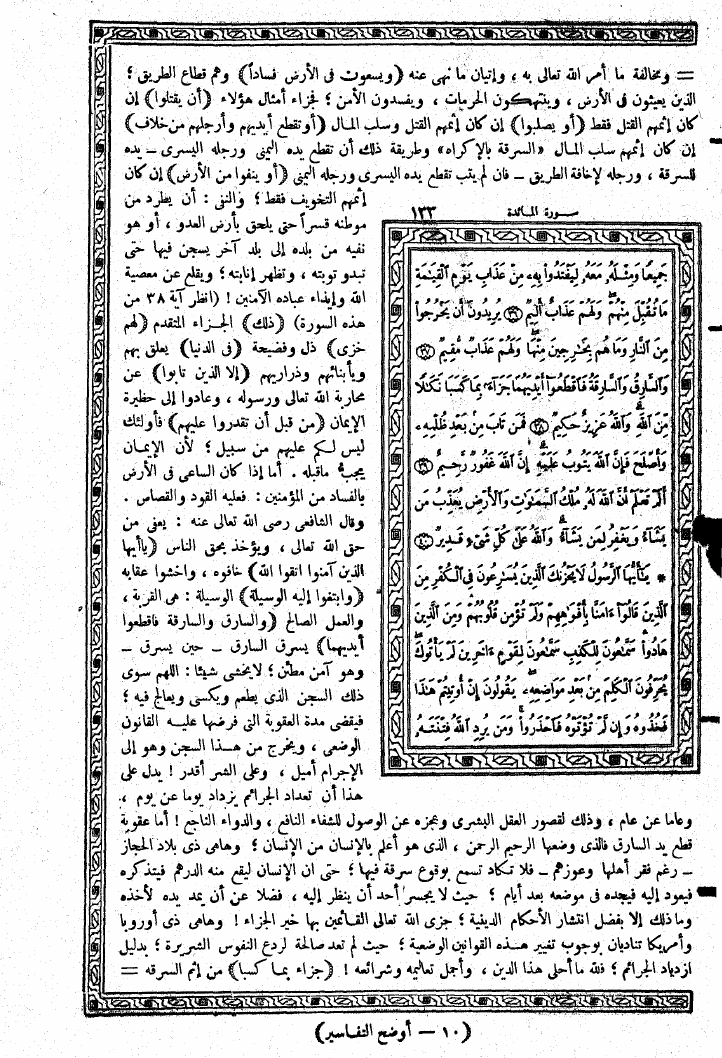 = ومخالفة ما أمر الله تعالى به ، وإتيان ما نهى عنه (ويسعون فى الأرض فساداً) وهم قطاع الطريق ؛
الذين يعيثون فى الأرض ، وينتهكون الحرمات ، ويفسدون الأمن ؛ فجزاء أمثال هؤلاء (أن يقتلوا) إن
كان إثمهم القتل فقط (أو يصلبوا) إن كان إثمهم القتل وسلب المال (أو تقطع أيديهم وأرجلهم من خلاف)
إن كان إثمهم سلب المال «السرقة بالإكراه» وطريقة ذلك أن تقطع يده اليمنى ورجله اليسرى ــ يده
للسرقة ، ورجله لإخافة الطريق ــ فان لم يتب تقطع يده اليسرى ورجله اليمنى (أو ينفوا من الأرض) إن كان
سورة المائدة ١٣٣
جَمِيعًا وَمِثْلَهُ مَعَهُ لِيَفْتَدُوا۟ بِهِۦ مِنْ عَذَابِ يَوْمِ ٱلْقِيَٰمَةِ
مَا تُقُبِّلَ مِنْهُمْ وَلَهُمْ عَذَابٌ أَلِيمٌ ٣٦ يُرِيدُونَ أَن يَخْرُجُوا۟
مِنَ ٱلنَّارِ وَمَا هُم بِخَٰرِجِينَ مِنْهَا وَلَهُمْ عَذَابٌ مُّقِيمٌ ٣٧
وَٱلسَّارِقُ وَٱلسَّارِقَةُ فَٱقْطَعُوٓا۟ أَيْدِيَهُمَا جَزَآءَۢ بِمَا كَسَبَا نَكَٰلًا
مِّنَ ٱللَّهِ وَٱللَّهُ عَزِيزٌ حَكِيمٌ ٣٨ فَمَن تَابَ مِنۢ بَعْدِ ظُلْمِهِۦ
وَأَصْلَحَ فَإِنَّ ٱللَّهَ يَتُوبُ عَلَيْهِ إِنَّ ٱللَّهَ غَفُورٌ رَّحِيمٌ ٣٩
أَلَمْ تَعْلَمْ أَنَّ ٱللَّهَ لَهُۥ مُلْكُ ٱلسَّمَٰوَٰتِ وَٱلْأَرْضِ يُعَذِّبُ مَن
يَشَآءُ وَيَغْفِرُ لِمَن يَشَآءُ وَٱللَّهُ عَلَىٰ كُلِّ شَىْءٍ قَدِيرٌ ٤٠
* يَٰٓأَيُّهَا ٱلرَّسُولُ لَا يَحْزُنكَ ٱلَّذِينَ يُسَٰرِعُونَ فِى ٱلْكُفْرِ مِنَ
ٱلَّذِينَ قَالُوٓا۟ ءَامَنَّا بِأَفْوَٰهِهِمْ وَلَمْ تُؤْمِن قُلُوبُهُمْ وَمِنَ ٱلَّذِينَ
هَادُوا۟ سَمَّٰعُونَ لِلْكَذِبِ سَمَّٰعُونَ لِقَوْمٍ ءَاخَرِينَ لَمْ يَأْتُوكَ
يُحَرِّفُونَ ٱلْكَلِمَ مِنۢ بَعْدِ مَوَاضِعِهِۦ يَقُولُونَ إِنْ أُوتِيتُمْ هَٰذَا
فَخُذُوهُ وَإِن لَّمْ تُؤْتَوْهُ فَٱحْذَرُوا۟ وَمَن يُرِدِ ٱللَّهُ فِتْنَتَهُۥ
إثمهم التخويف فقط ؛ والننى : أن يطرد من
موطنه قسراً حتى يلحق بأرض العدو ، أو هو
نفيه من بلده إلى بلد آخر يسجن فيها حتى
تبدو توبته ، وتظهر إنابته ؛ ويقلع عن معصية
الله وإيذاء عباده الآمنين ! (انظر آية ٣٨ من
هذه السورة) (ذلك) الجزاء المتقدم (لهم
خزى) ذل وفضيحة (فى الدنيا) يعلق بهم
وبأبنائهم وذراريهم (إلا الذين تابوا) عن
محاربة الله تعالى ورسوله ، وعادوا إلى حظيرة
الإيمان (من قبل أن تقدروا عليهم) فأولئك
ليس لكم عليهم من سبيل ؛ لأن الإيمان
يجب ماقبله . أما إذا كان الساعى فى الأرض
بالفساد من المؤمنين : فعليه القود والقصاص .
وقال الشافعى رضى الله تعالى عنه : يعفى من
حق الله تعالى ، ويؤخذ بحق الناس (ياأيها
الذين آمنوا اتقوا الله) خافوه ، واخشوا عقابه
(وابتغوا إليه الوسيلة) الوسيلة : هى القربة ،
والعمل الصالح (والسارق والسارقة فاقطعوا
أيديهما) يسرق السارق ــ حين يسرق ــ
وهو آمن مطمئن ؛ لايخشى شيئا : اللهم سوى
ذلك السجن الذى يطعم ويكسى ويعالج فيه ؛
فيقضى مدة العقوبة التى فرضها عليه القانون
الوضعى ، ويخرج من هذا السجن وهو إلى
الإجرام أميل ، وعلى الشر أقدر ! يدل على
هذا أن تعداد الجرائم يزداد يوما عن يوم ،
وعاما عن عام ، وذلك لقصور العقل البشرى وعجزه عن الوصول للشفاء النافع ، والدواء الناجع ! أما عقوبة
قطع يد السارق فالذى وضعها الرحيم الرحمن ، الذى هو أعلم بالإنسان من الإنسان ؛ وهاهى ذى بلاد الحجاز
ــ رغم فقر أهلها وعوزهم ــ فلا تكاد تسمع بوقوع سرقة فيها ؛ حتى ان الإنسان ليقع منه الدرهم فيتذكره
فيعود إليه فيجده فى موضعه بعد أيام ؛ حيث لايجسر أحد أن ينظر إليه ، فضلا عن أن يمد يده لأخذه
وما ذلك إلا بفضل انتشار الأحكام الدينية ؛ جزى الله تعالى القائمين بها خير الجزاء ! وهاهى ذى أوروبا
وأمريكا تناديان بوجوب تغيير هذه القوانين الوضعية ؛ حيث لم تعد صالحة لردع النفوس الشريرة ؛ بدليل
ازدياد الجرائم ؛ فلله ما أحلى هذا الدين ، وأجمل تعاليمه وشرائعه ! (جزاء بما كسبا) من إثم السرقه =
(١٠ ــ أوضح التفاسير)